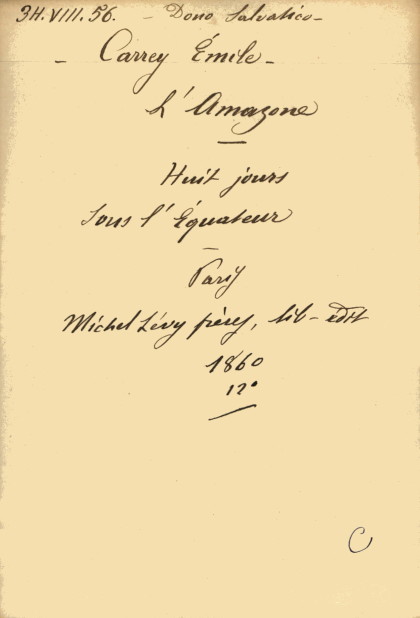 34.VIII.56. - Dono Salvatico -
- Carrey Émile -
L'Amazone
Huit jours
sous l'Équateur
-
Paris
Michel Lévy frères, lib-édit
1860
12°
C